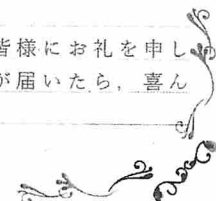 皆様にお礼を申し
が届いたら，喜ん